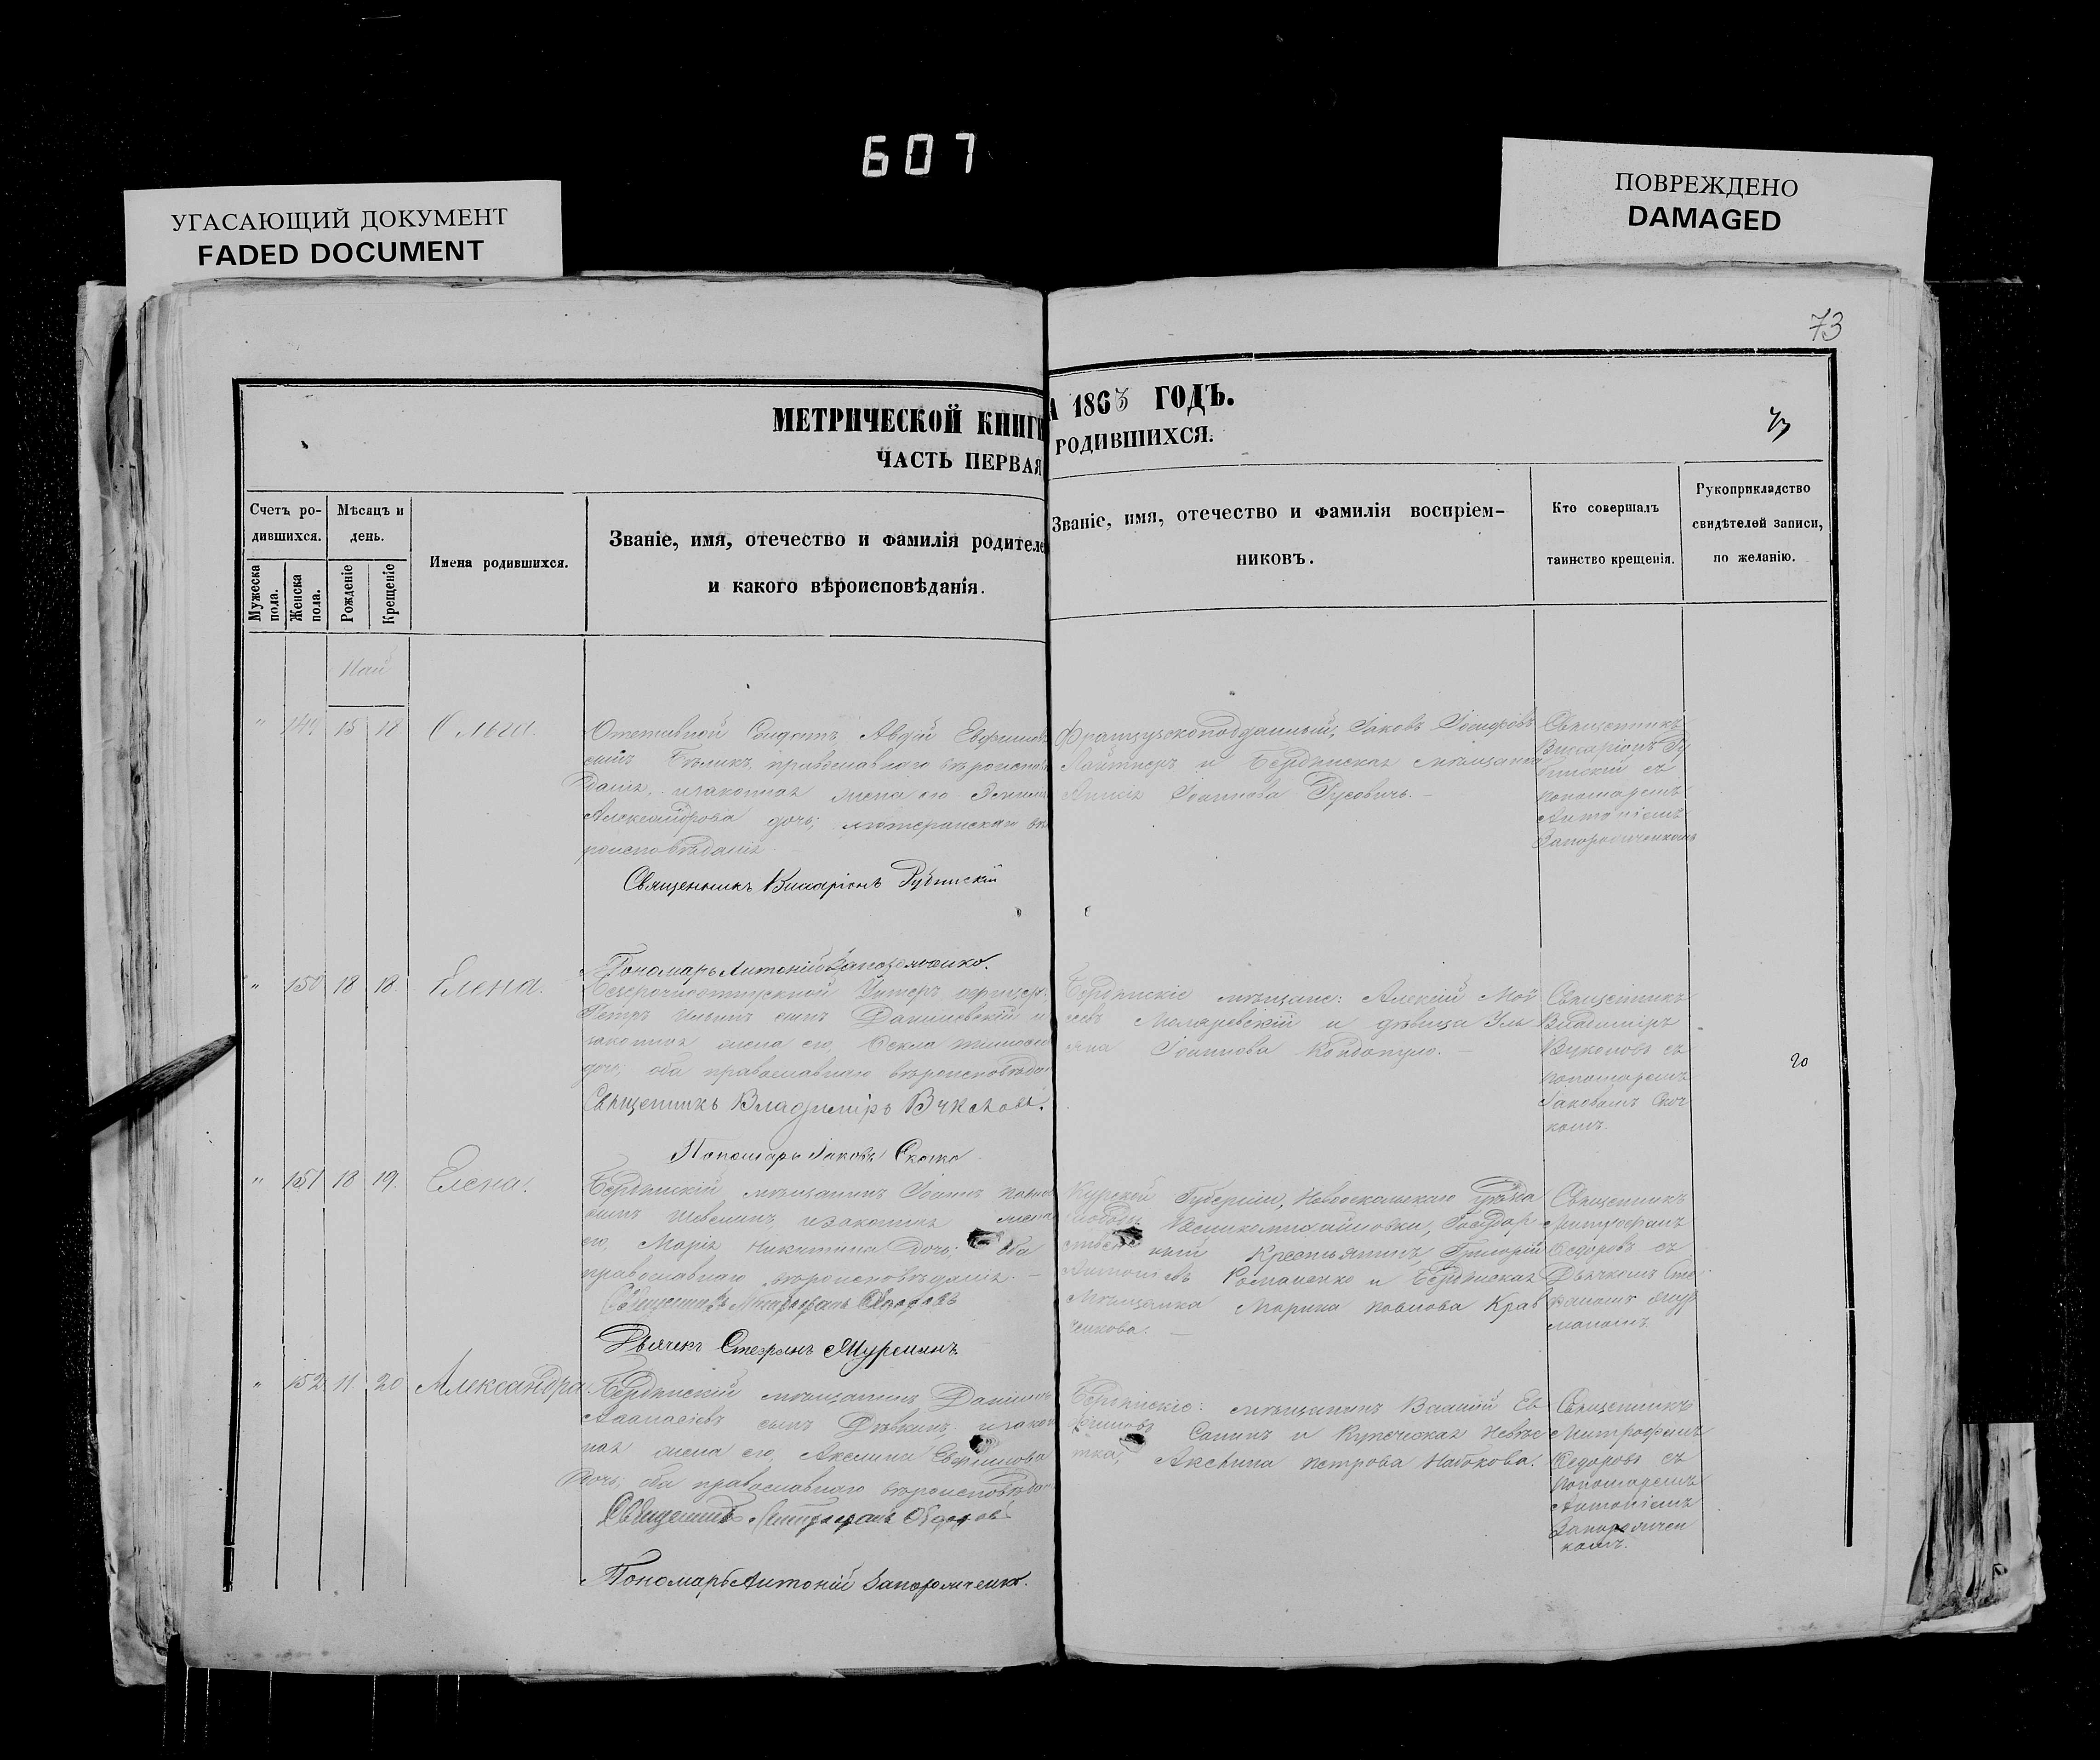 607
УГАСАЮЩИЙ ДОКУМЕНТ
FADED DOCUMENT
ПОВРЕЖДЕНО
DAMAGED
73
МЕТРИЧЕСКОЙ КНИГИ
А 1863 ГОДЪ.
ЧАСТЬ ПЕРВАЯ
РОДИВШИХСЯ.
73
Счетъ ро-
дившихся.
Мужеска
пола.
Женска
пола.
Мѣсяцъ и
день.
Рожденіе
Крещеніе
Имена родившихся.
Званіе, имя, отечество и фамилія родителе
и какого вѣроисповѣданія.
Званіе, имя, отечество и фамилія воспріем-
никовъ.
Кто совершалъ
таинство крещенія.
Рукоприкладство
свидѣтелей записи,
по желанію.
Май
" 149 15 18 Ольга.
Отставной Солдатъ Авдій
сынъ Бѣликъ, православнаго вѣроисповѣ
данія, и законная жена его
Александрова дочь; лютеранскаго вѣ
роисповѣданія
Священникъ Виссаріонъ Губинскій
Пономарь Антоній Запорожченко.
Французскоподданный, Іаковъ Іосифовъ
и Бердянская мѣщанка
Іоаннова
Священникъ
Виссаріонъ Гу
бинскій съ
пономаремъ
Антоніемъ
Запорожченкомъ
" 150 18 18 Елена.
Безсрочноотпускной Унтеръ офицеръ
Петръ Ильинъ сынъ Даниловскій и
законная жена его, Ѳекла
дочь; оба православнаго вѣроисповѣдан
Священникъ Владиміръ Вуколовъ.
Пономарь Іаковъ
Бердянскіе мѣщане: Алексій Мой
сеевъ и дѣвица Уль
яна Іоаннова
Священникъ
Владиміръ
Вуколовъ съ
пономаремъ
Іаковомъ
комъ.
20
" 151 18 19 Елена.
Бердянскій мѣщанинъ Іоаннъ
сынъ и законная жена
его, Марія Никитина дочь; оба
православнаго вѣроисповѣданія. –
Священникъ Митрофанъ Ѳедоровъ
Дьячекъ Стефанъ Мурманъ
Курской Губерніи, Новооскольскаго уѣзда
слободы Великомихайловки, Государ
ственный Крестьянинъ, Григорій
Романенко и Бердянская
Мѣщанка Марина Павлова Крав
ченкова. –
Священникъ
Митрофанъ
Ѳедоровъ съ
Дьячкомъ Сте
фаномъ Мур
маномъ
" 152 11 20 Александра
Бердянскій мѣщанинъ, Даніилъ
Аѳанасіевъ сынъ и закон
ная жена его,
дочь; оба православнаго вѣроисповѣдан
Священникъ Митрофанъ Ѳедоровъ
Пономарь Антоній Запорожченко.
Бердянскіе: мѣщанинъ Василій Ев
фимовъ и Купеческая Невѣс
тка, Петрова Набокова.
Священникъ
Митрофанъ
Ѳедоровъ съ
пономаремъ
Антоніемъ
Запорожчен
комъ.